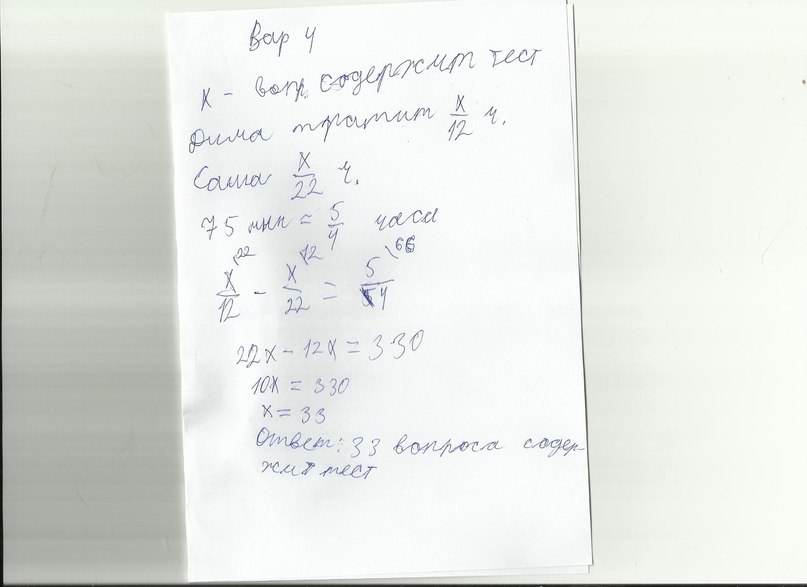 Вар 4
х - вопр. содержит тест
Дима тратит х/12 ч.
Саша х/22 ч.
75 мин = 5/4 часа
х/12 \22 - х/22 \12 = 5/4 \66
22х - 12х = 330
10х = 330
х = 33
Ответ: 33 вопроса содер-
жит тест